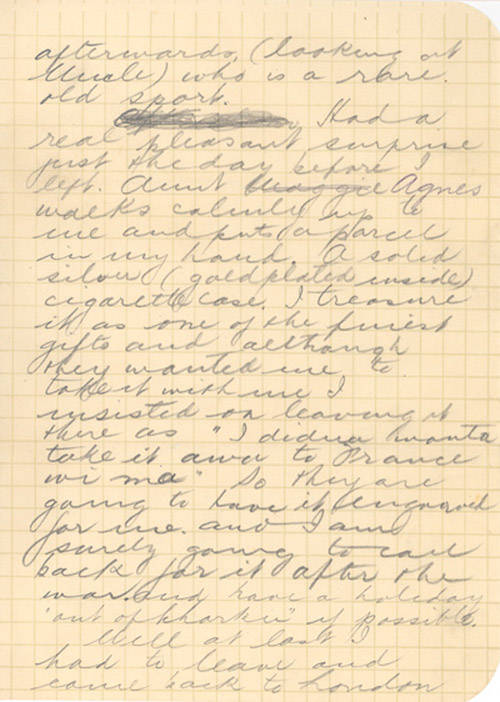 afterwards, (looking at
Uncle) who is a rare
old sport.
Had a
real pleasant surprise
just the day before I
left. Aunt Maggie Agnes
walks calmly up to
me and puts a parcel
in my hand. A solid
silver (gold plated inside)
cigarette case. I treasure
it as one of the finest
gifts and although
they wanted me to
take it with me I
insisted on leaving it
there as "I didna wanta
take it awa to France
wi ma" So they are
going to have it engraved
for me. and I am
surely going to call
back for it after the
war. and have a holiday
"out of kharkii" if possible.
Well at last I
had to leave and
came back to London